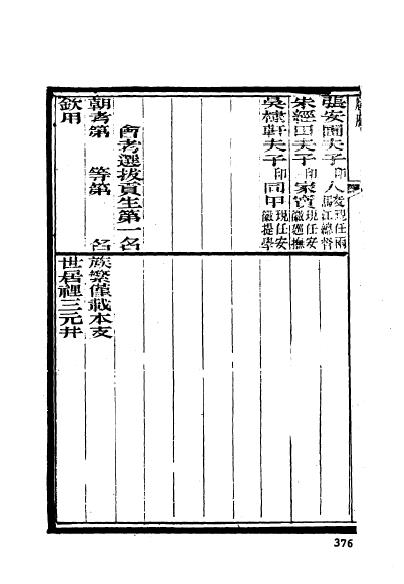 張安圃夫子印人駿現任兩江總督
朱經田夫子印家寶現任安徽巡撫
吳棣軒夫子印同甲現任安徽提學
會考選拔貢生第一名
朝考第 等第 名
欽用
族繁僅載本支
世居裡三元井
376